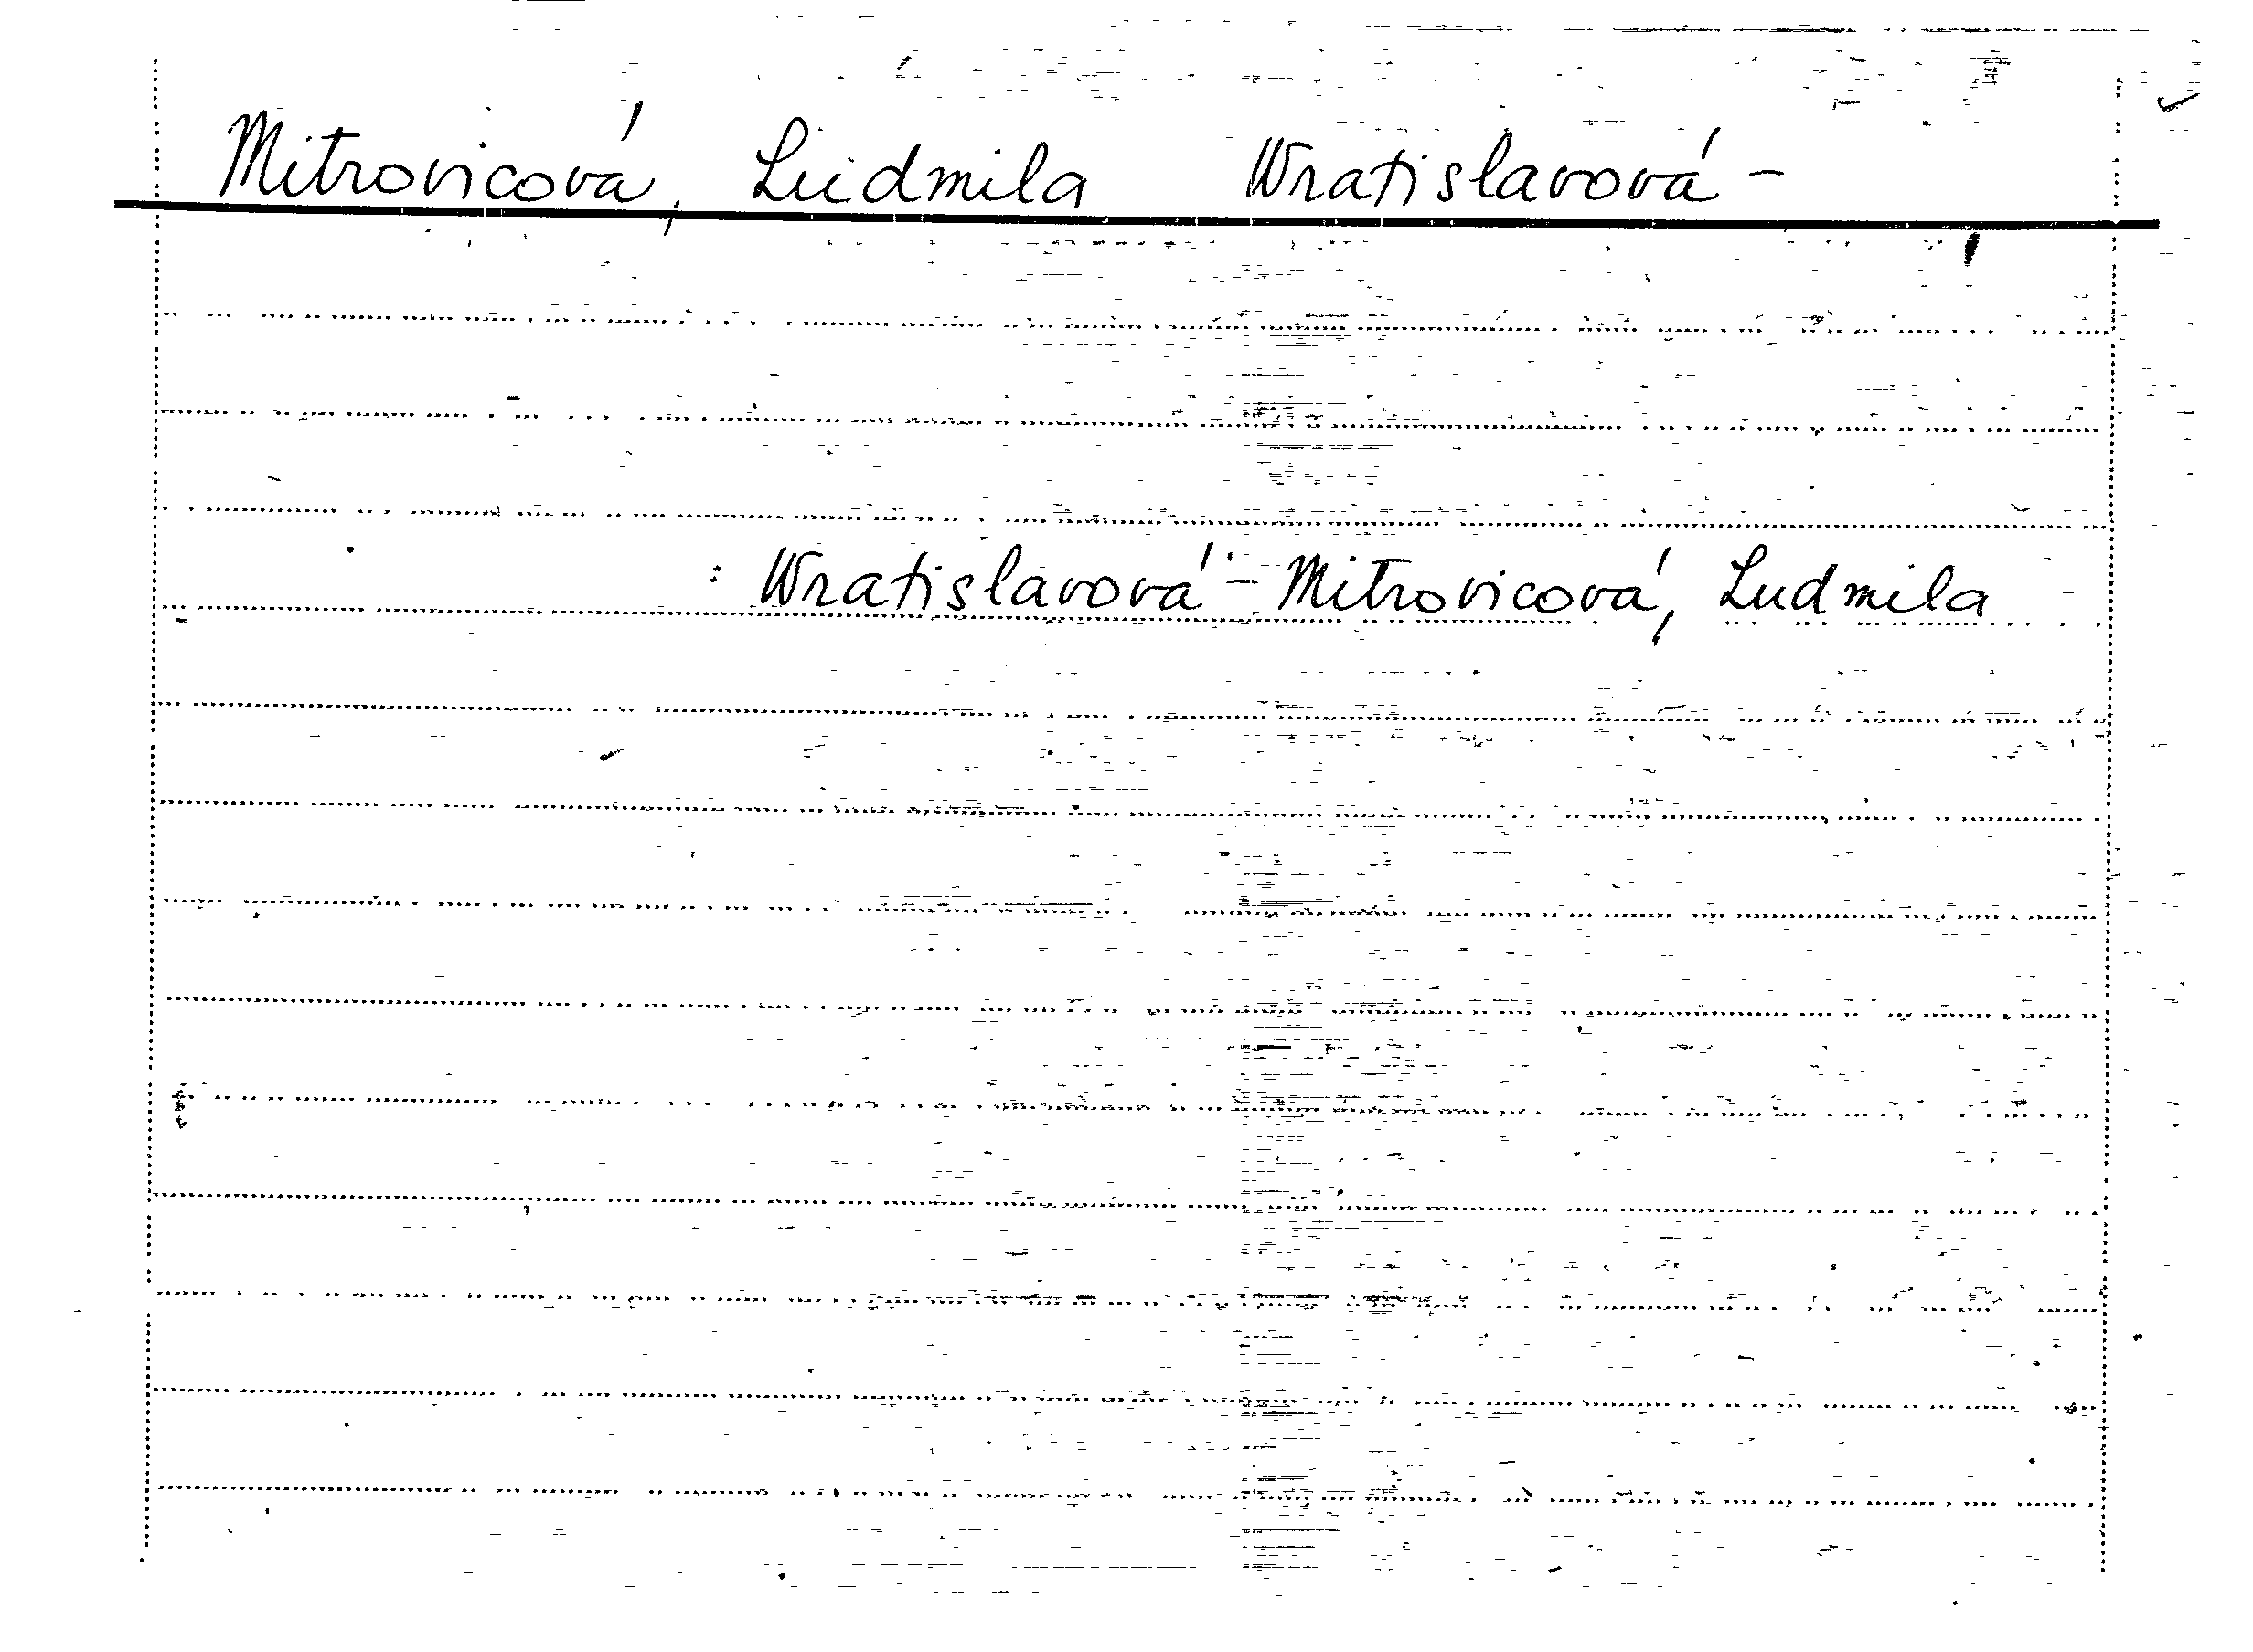 Mitrovicová, Ludmila Wratislavová-
: Wratislavová - Mitrovicová, Ludmila